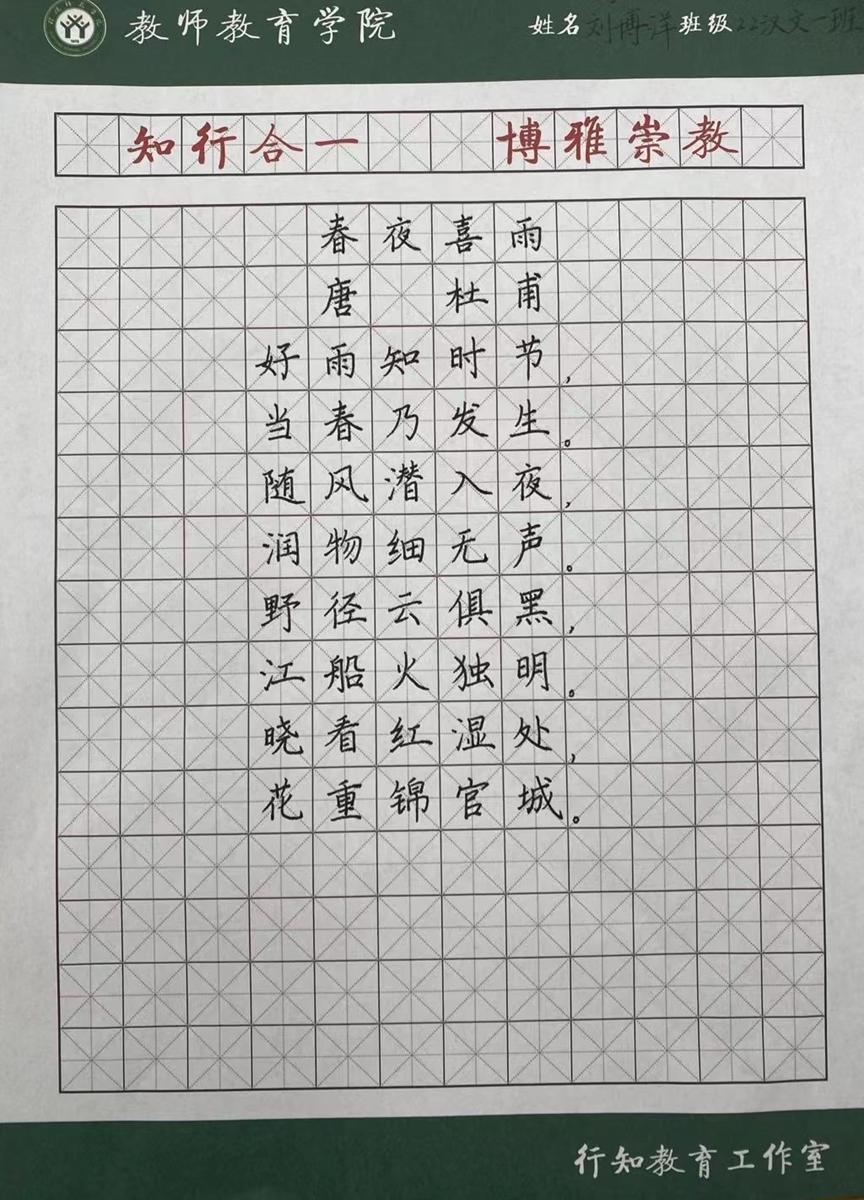 教师教育学院 姓名 刘博洋 班级 22汉文一班
知行合一 博雅崇教
春夜喜雨
唐 杜甫
好雨知时节，
当春乃发生。
随风潜入夜，
润物细无声。
野径云俱黑，
江船火独明。
晓看红湿处，
花重锦官城。
行知教育工作室